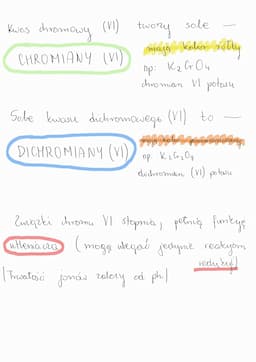 Kwas chromowy (VI) tworzy sole —
CHROMIANY (VI)
mają kolor żółty
np: K₂CrO₄
chromian VI potasu
Sole kwasu dichromowego (VI) to —
DICHROMIANY (VI)
np. K₂Cr₂O₇
dichromian (VI) potasu
Związki chromu VI stopnia, pełnią funkcję
utleniacza (mogą ulegać jedynie reakcjom
redukcji)
Trwałość jonów zależy od ph!